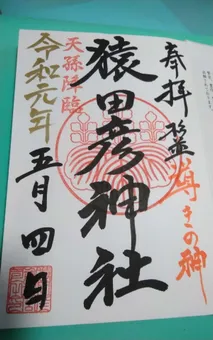 奉拝
導きの神
猿田彦神社
天孫降臨
令和元年
五月四日